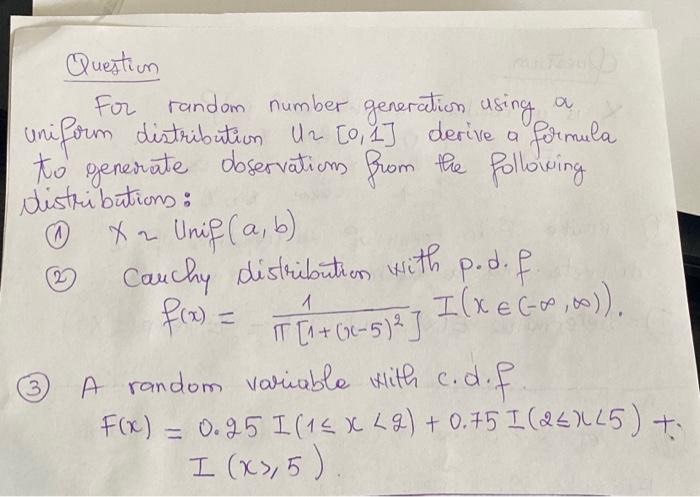 Question
For random number generation using a
uniform distribution U~ [0,1] derive a formula
to generate observations from the following
distributions:
① X ~ Unif(a,b)
② Cauchy distribution with p.d.f.
f(x) = 1 / π[1+(x-5)²] I(x∈(-∞,∞)).
③ A random variable with c.d.f.
F(x) = 0.25 I(1≤x<2) + 0.75 I(2≤x<5) +
I(x≥5).